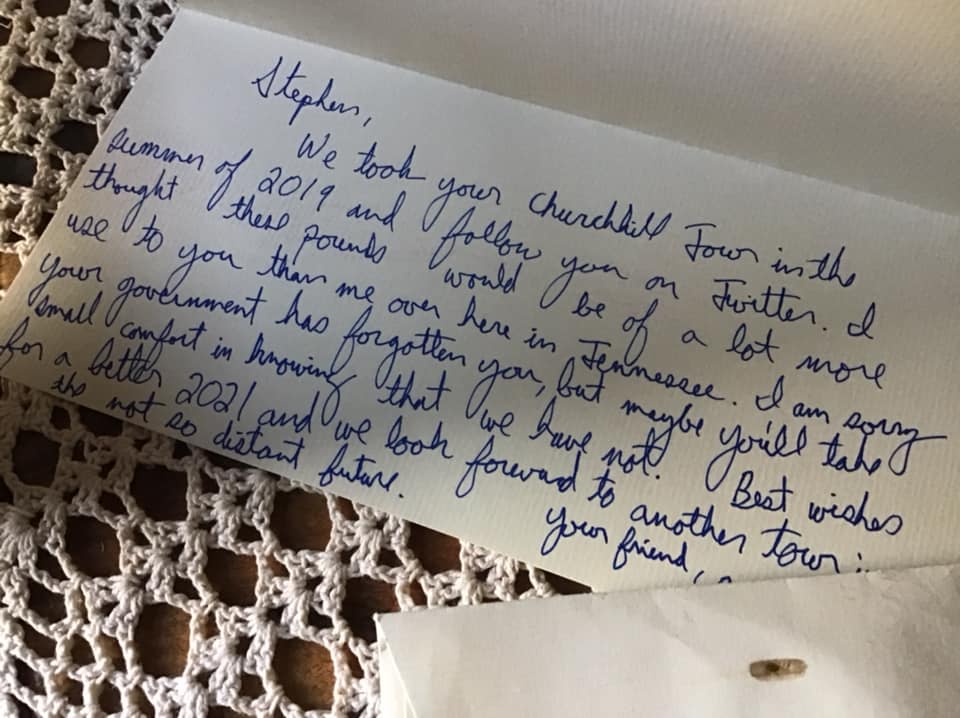 Stephen,
We took your Churchill Tour in the
summer of 2019 and follow you on Twitter. I
thought these pounds would be of a lot more
use to you than me over here in Tennessee. I am sorry
your government has forgotten you, but maybe you'll take
small comfort in knowing that we have not. Best wishes
for a better 2021 and we look forward to another tour in
the not so distant future.
Your friend,